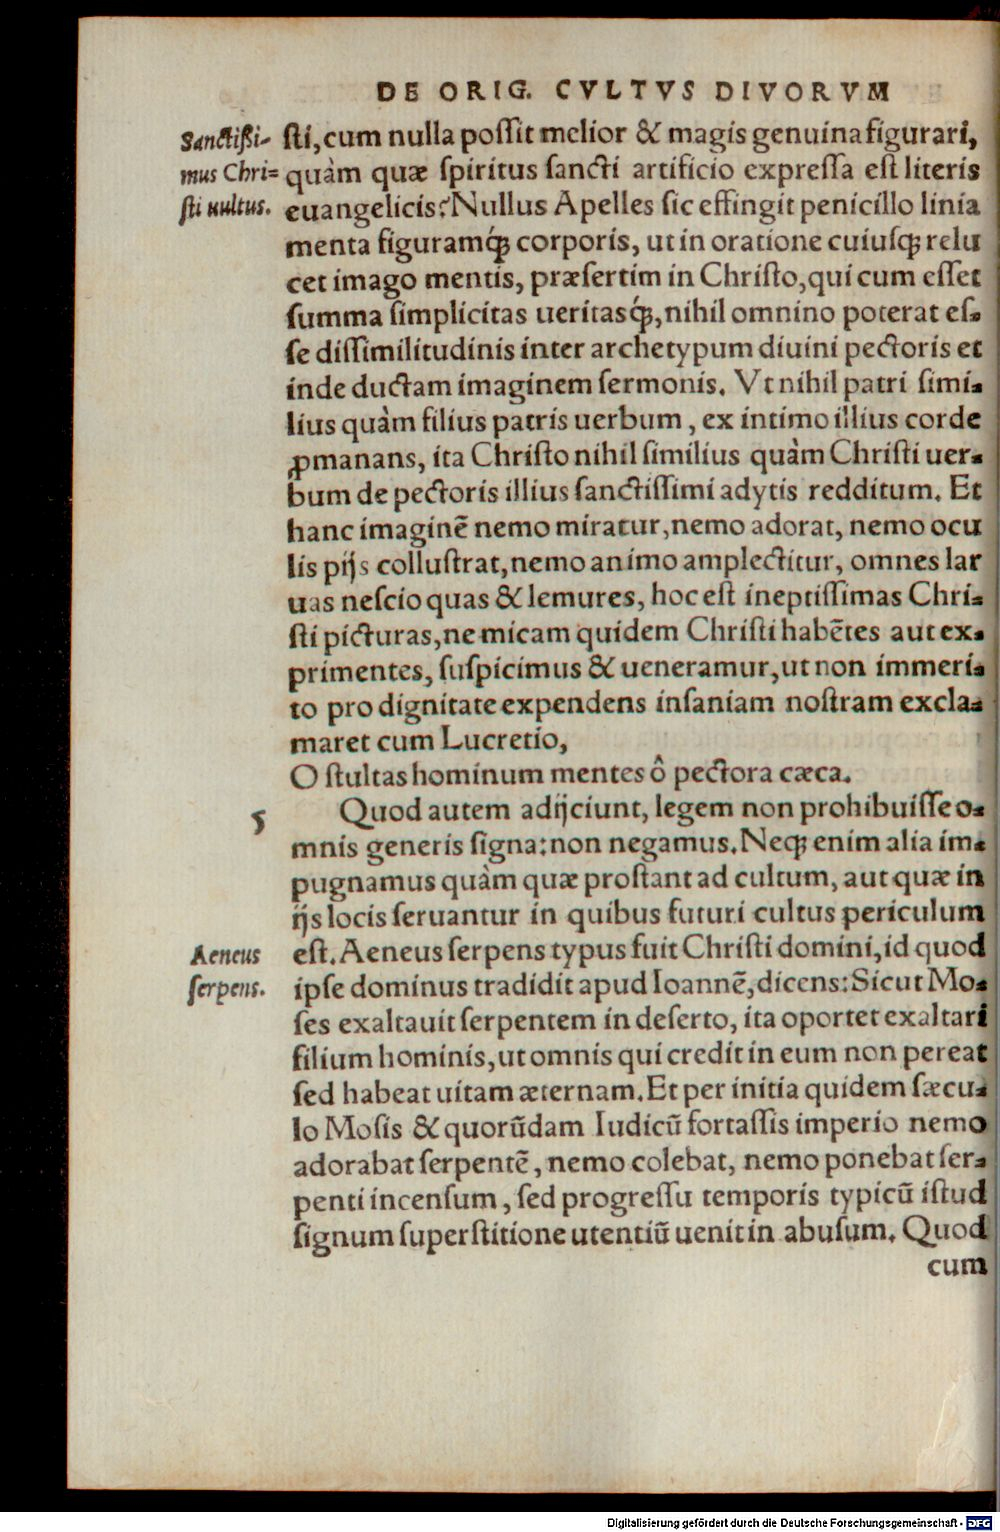 DE ORIG. CVLTVS DIVORVM
Sanctißi-
mus Chri=
sti uultus.
ſti, cum nulla poſſit melior & magis genuina figurari,
quàm quæ ſpiritus ſancti artificio expreſſa eſt literis
euangelicis? Nullus Apelles ſic effingit penicillo linia
menta figuramq́ꝫ corporis, ut in oratione cuiuſqꝫ relu
cet imago mentis, præſertim in Chriſto, qui cum eſſet
ſumma ſimplicitas ueritasq́ꝫ, nihil omnino poterat eſ-
ſe diſſimilitudinis inter archetypum diuini pectoris et
inde ductam imaginem ſermonis. Vt nihil patri ſimi-
lius quàm filius patris uerbum, ex intimo illius corde
ꝓmanans, ita Chriſto nihil ſimilius quàm Chriſti uer-
bum de pectoris illius ſanctiſſimi adytis redditum. Et
hanc imaginẽ nemo miratur, nemo adorat, nemo ocu
lis pijs colluſtrat, nemo animo amplectitur, omnes lar
uas neſcio quas & lemures, hoc eſt ineptiſſimas Chri-
ſti picturas, ne micam quidem Chriſti habẽtes aut ex-
primentes, ſuſpicimus & ueneramur, ut non immeri-
to pro dignitate expendens inſaniam noſtram excla-
maret cum Lucretio,
O ſtultas hominum mentes ô pectora cæca.
5
Quod autem adijciunt, legem non prohibuiſſe o-
mnis generis ſigna: non negamus. Neqꝫ enim alia im-
pugnamus quàm quæ proſtant ad cultum, aut quæ in
ijs locis ſeruantur in quibus futuri cultus periculum
Aeneus
ſerpens.
eſt. Aeneus ſerpens typus fuit Chriſti domini, id quod
ipſe dominus tradidit apud Ioannẽ, dicens: Sicut Mo-
ſes exaltauit ſerpentem in deſerto, ita oportet exaltari
filium hominis, ut omnis qui credit in eum non pereat
ſed habeat uitam æternam. Et per initia quidem ſæcu-
lo Moſis & quorũdam Iudicũ fortaſſis imperio nemo
adorabat ſerpentẽ, nemo colebat, nemo ponebat ſer-
penti incenſum, ſed progreſſu temporis typicũ iſtud
ſignum ſuperſtitione utentiũ uenit in abuſum. Quod
cum
Digitalisierung gefördert durch die Deutsche Forschungsgemeinschaft - DFG